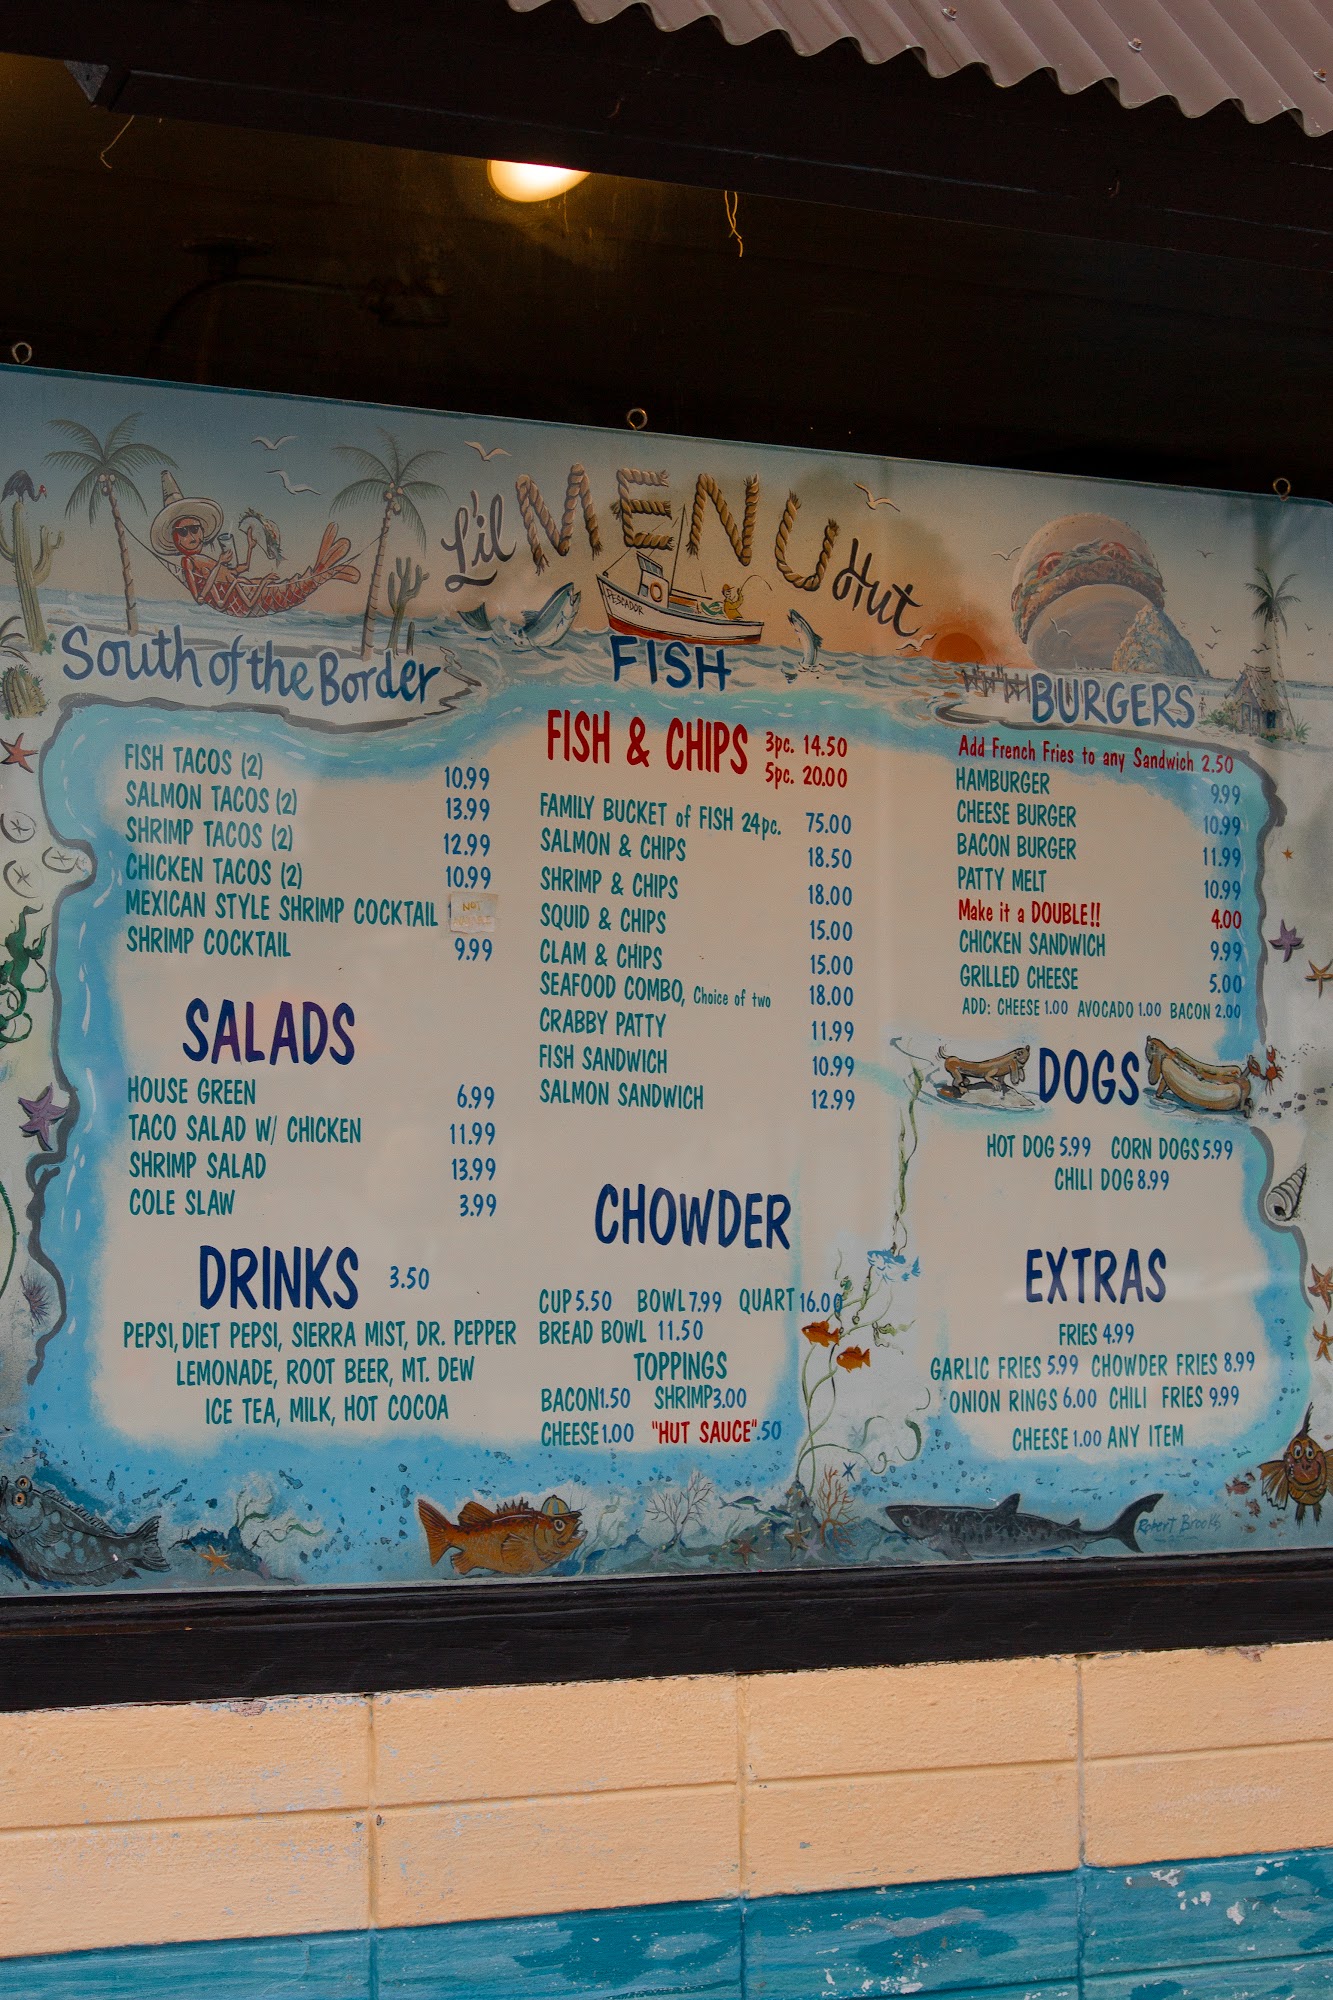 L'il MENU Hut
PESCADOR
South of the Border
FISH TACOS (2) 10.99
SALMON TACOS (2) 13.99
SHRIMP TACOS (2) 12.99
CHICKEN TACOS (2) 10.99
MEXICAN STYLE SHRIMP COCKTAIL NOT
SHRIMP COCKTAIL 9.99
SALADS
HOUSE GREEN 6.99
TACO SALAD W/ CHICKEN 11.99
SHRIMP SALAD 13.99
COLE SLAW 3.99
DRINKS 3.50
PEPSI, DIET PEPSI, SIERRA MIST, DR. PEPPER
LEMONADE, ROOT BEER, MT. DEW
ICE TEA, MILK, HOT COCOA
FISH
FISH & CHIPS 3pc. 14.50
5pc. 20.00
FAMILY BUCKET of FISH 24pc. 75.00
SALMON & CHIPS 18.50
SHRIMP & CHIPS 18.00
SQUID & CHIPS 15.00
CLAM & CHIPS 15.00
SEAFOOD COMBO, Choice of two 18.00
CRABBY PATTY 11.99
FISH SANDWICH 10.99
SALMON SANDWICH 12.99
CHOWDER
CUP 5.50 BOWL 7.99 QUART 16.00
BREAD BOWL 11.50
TOPPINGS
BACON 1.50 SHRIMP 3.00
CHEESE 1.00 "HUT SAUCE" .50
BURGERS
Add French Fries to any Sandwich 2.50
HAMBURGER 9.99
CHEESE BURGER 10.99
BACON BURGER 11.99
PATTY MELT 10.99
Make it a DOUBLE!! 4.00
CHICKEN SANDWICH 9.99
GRILLED CHEESE 5.00
ADD: CHEESE 1.00 AVOCADO 1.00 BACON 2.00
DOGS
HOT DOG 5.99 CORN DOGS 5.99
CHILI DOG 8.99
EXTRAS
FRIES 4.99
GARLIC FRIES 5.99 CHOWDER FRIES 8.99
ONION RINGS 6.00 CHILI FRIES 9.99
CHEESE 1.00 ANY ITEM
Robert Brooks